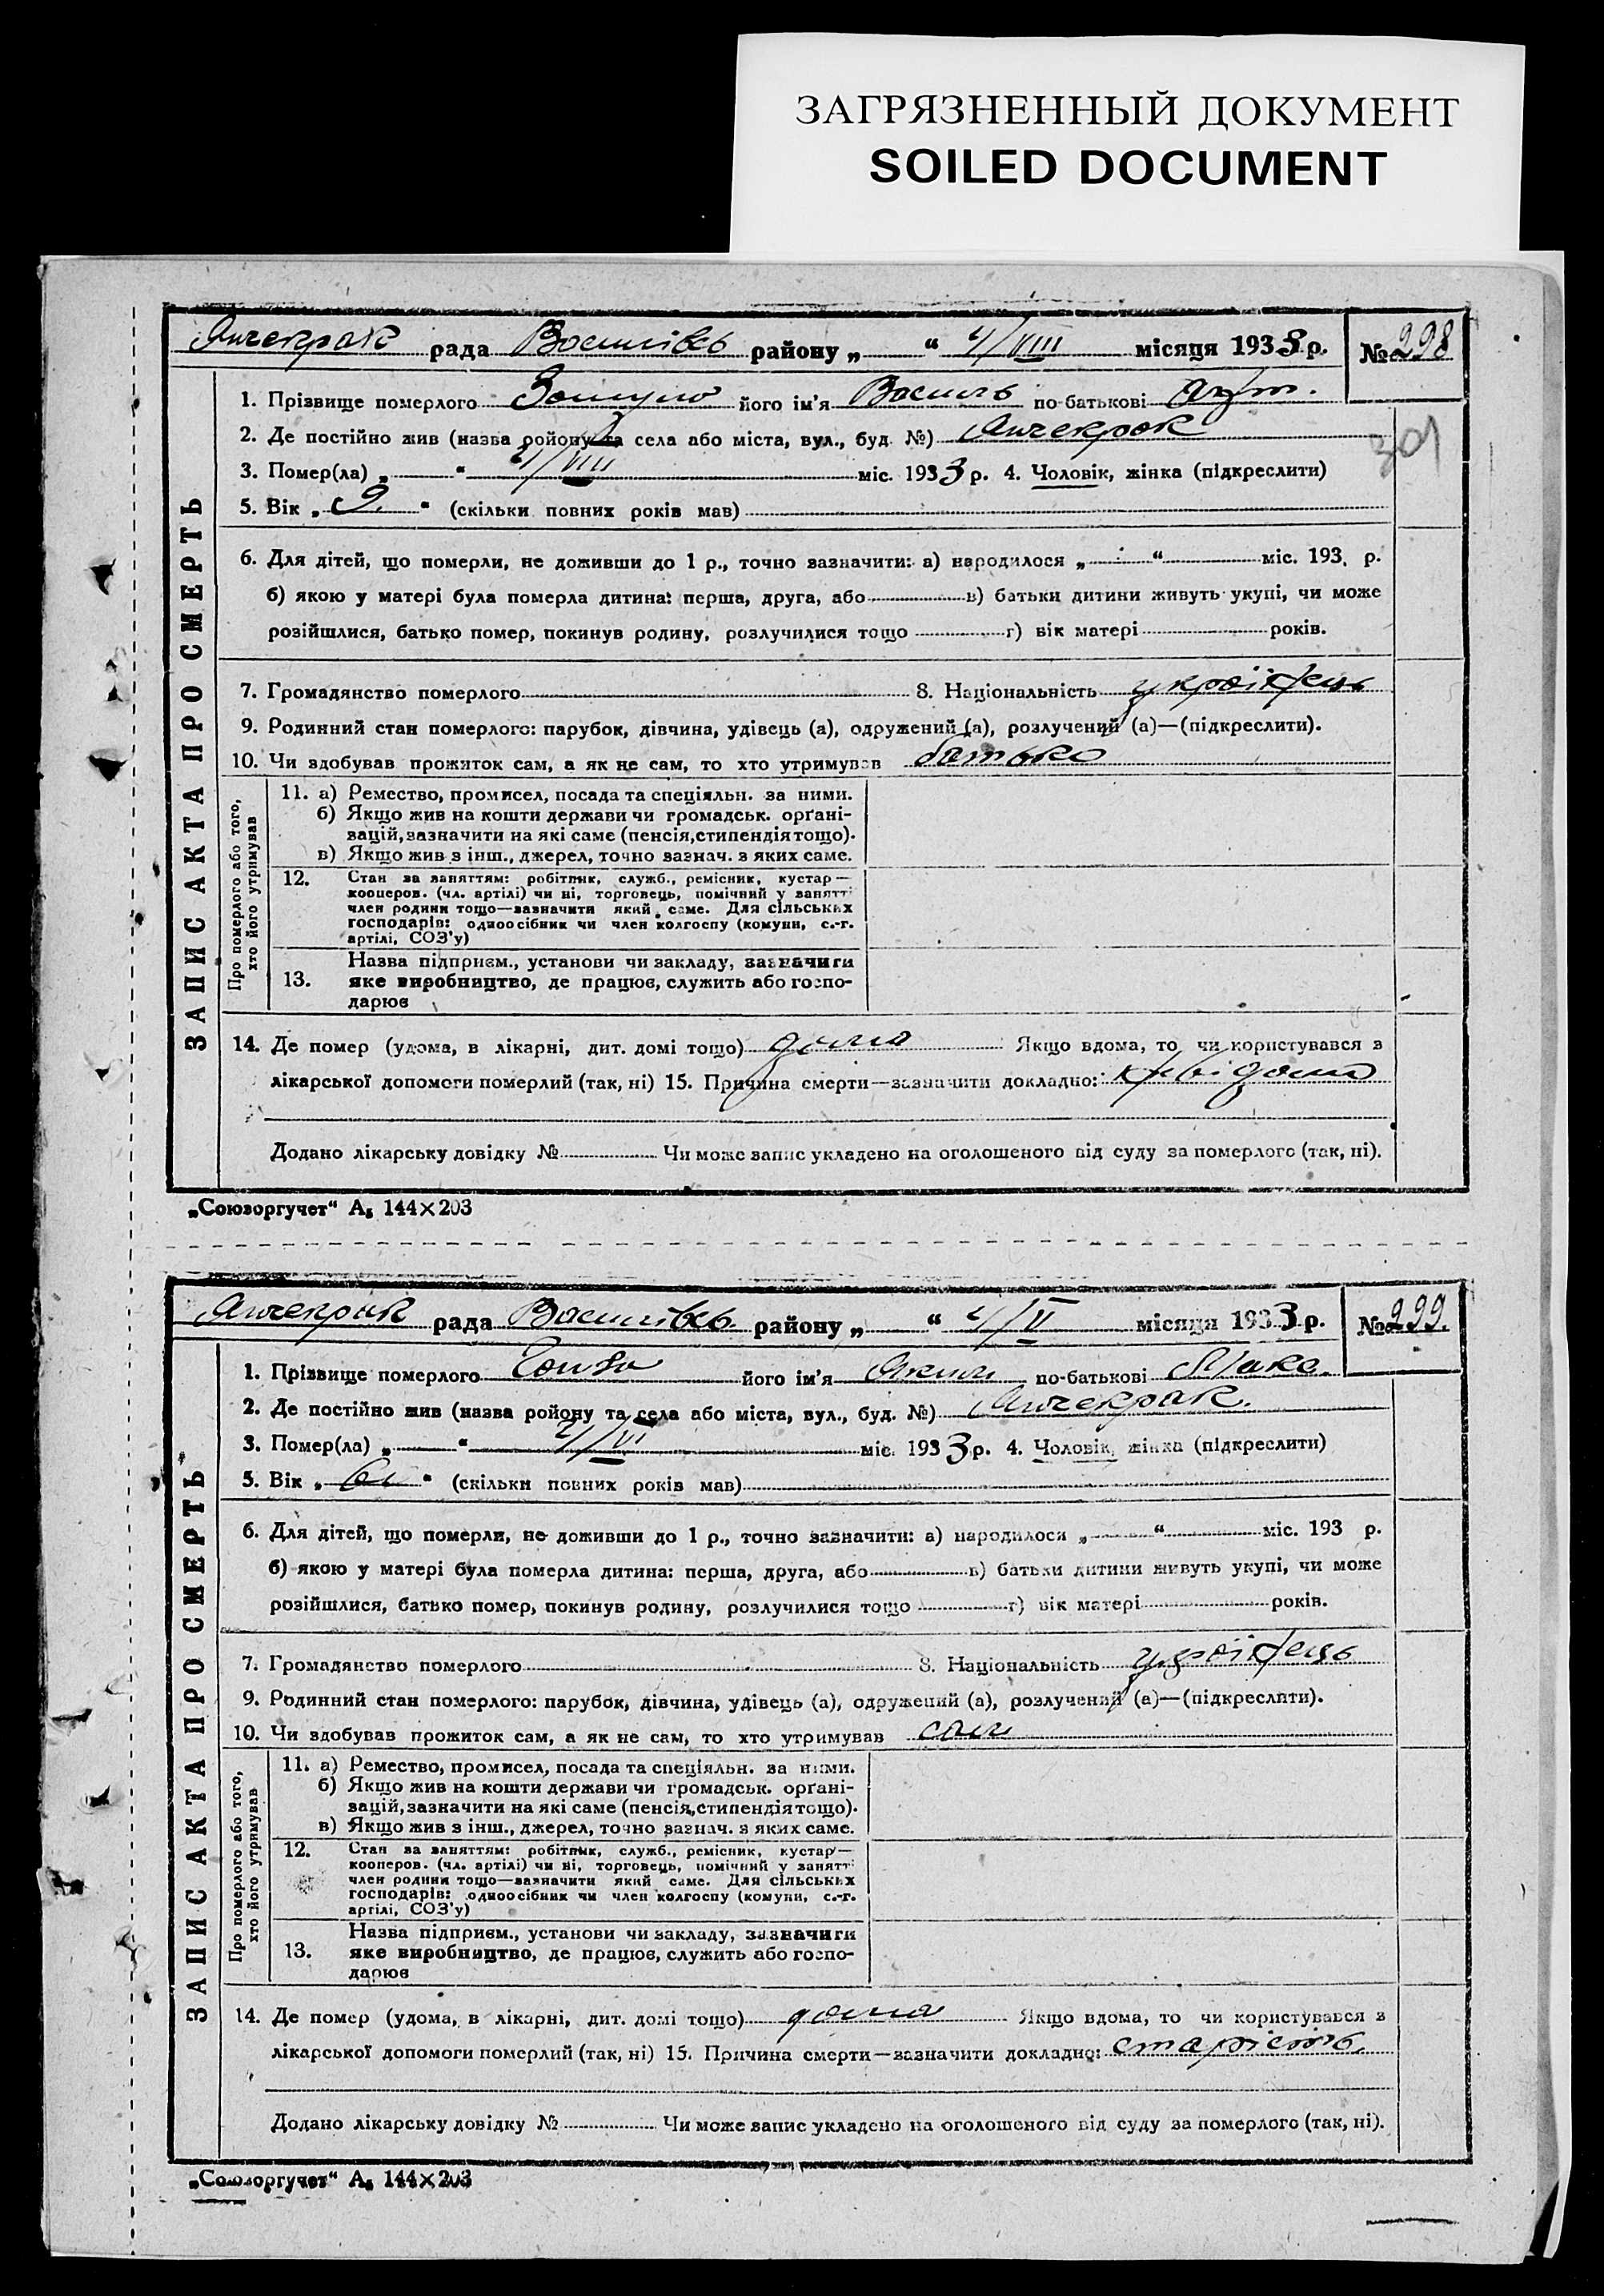 ЗАГРЯЗНЕННЫЙ ДОКУМЕНТ
SOILED DOCUMENT
Янчекрак рада Василівсь району „ “ 4/VIII місяця 1933 р. № 298
1. Прізвище померлого його ім'я Василь по-батькові
2. Де постійно жив (назва ройону та села або міста, вул., буд. №) Янчекрак
301
3. Помер(ла) „ “ 4/VIII міс. 1933 р. 4. Чоловік, жінка (підкреслити)
5. Вік „ 9. “ (скільки повних років мав)
6. Для дітей, що померли, не доживши до 1 р., точно зазначити: а) народилося „ “ міс. 193 р.
б) якою у матері була померла дитина: перша, друга, або в) батьки дитини живуть укупі, чи може
розійшлися, батько помер, покинув родину, розлучилися тощо г) вік матері років.
7. Громадянство померлого 8. Національність українець
9. Родинний стан померлого: парубок, дівчина, удівець (а), одружений (а), розлучений (а)—(підкреслити).
10. Чи здобував прожиток сам, а як не сам, то хто утримував батько
ЗАПИС АКТА ПРО СМЕРТЬ
Про померлого або того,
хто його утримував
11. а) Ремество, промисел, посада та спеціяльн. за ними.
б) Якщо жив на кошти держави чи громадськ. орґані-
зацій, зазначити на які саме (пенсія, стипендія тощо).
в) Якщо жив з інш., джерел, точно зазнач. з яких саме.
12. Стан за заняттям: робітник, служб., ремісник, кустар—
кооперов. (чл. артілі) чи ні, торговець, помічний у занятті
член родини тощо—зазначити який саме. Для сільських
господарів: одноосібник чи член колгоспу (комуни, с.-г.
артілі, СОЗ'у)
13. Назва підприєм., установи чи закладу, зазначити
яке виробництво, де працює, служить або госпо-
дарює
14. Де помер (удома, в лікарні, дит. домі тощо) дома Якщо вдома, то чи користувався з
лікарської допомоги померлий (так, ні) 15. Причина смерти—зазначити докладно: невідомо
Додано лікарську довідку № Чи може запис укладено на оголошеного від суду за померлого (так, ні).
„Союзоргучет“ А₅ 144×203
Янчекрак рада Василівсь. району „ “ 4/VI місяця 1933 р. № 299.
1. Прізвище померлого його ім'я по-батькові
2. Де постійно жив (назва ройону та села або міста, вул., буд. №) Янчекрак.
3. Помер(ла) „ “ 4/VI міс. 1933 р. 4. Чоловік, жінка (підкреслити)
5. Вік „ “ (скільки повних років мав)
6. Для дітей, що померли, не доживши до 1 р., точно зазначити: а) народилося „ “ міс. 193 р.
б) якою у матері була померла дитина: перша, друга, або в) батьки дитини живуть укупі, чи може
розійшлися, батько помер, покинув родину, розлучилися тощо г) вік матері років.
7. Громадянство померлого 8. Національність українець
9. Родинний стан померлого: парубок, дівчина, удівець (а), одружений (а), розлучений (а)—(підкреслити).
10. Чи здобував прожиток сам, а як не сам, то хто утримував сам
ЗАПИС АКТА ПРО СМЕРТЬ
Про померлого або того,
хто його утримував
11. а) Ремество, промисел, посада та спеціяльн. за ними.
б) Якщо жив на кошти держави чи громадськ. орґані-
зацій, зазначити на які саме (пенсія, стипендія тощо).
в) Якщо жив з інш., джерел, точно зазнач. з яких саме.
12. Стан за заняттям: робітник, служб., ремісник, кустар—
кооперов. (чл. артілі) чи ні, торговець, помічний у занятті
член родини тощо—зазначити який саме. Для сільських
господарів: одноосібник чи член колгоспу (комуни, с.-г.
артілі, СОЗ'у)
13. Назва підприєм., установи чи закладу, зазначити
яке виробництво, де працює, служить або госпо-
дарює
14. Де помер (удома, в лікарні, дит. домі тощо) дома Якщо вдома, то чи користувався з
лікарської допомоги померлий (так, ні) 15. Причина смерти—зазначити докладно: старість.
Додано лікарську довідку № Чи може запис укладено на оголошеного від суду за померлого (так, ні).
„Союзоргучет“ А₅ 144×203